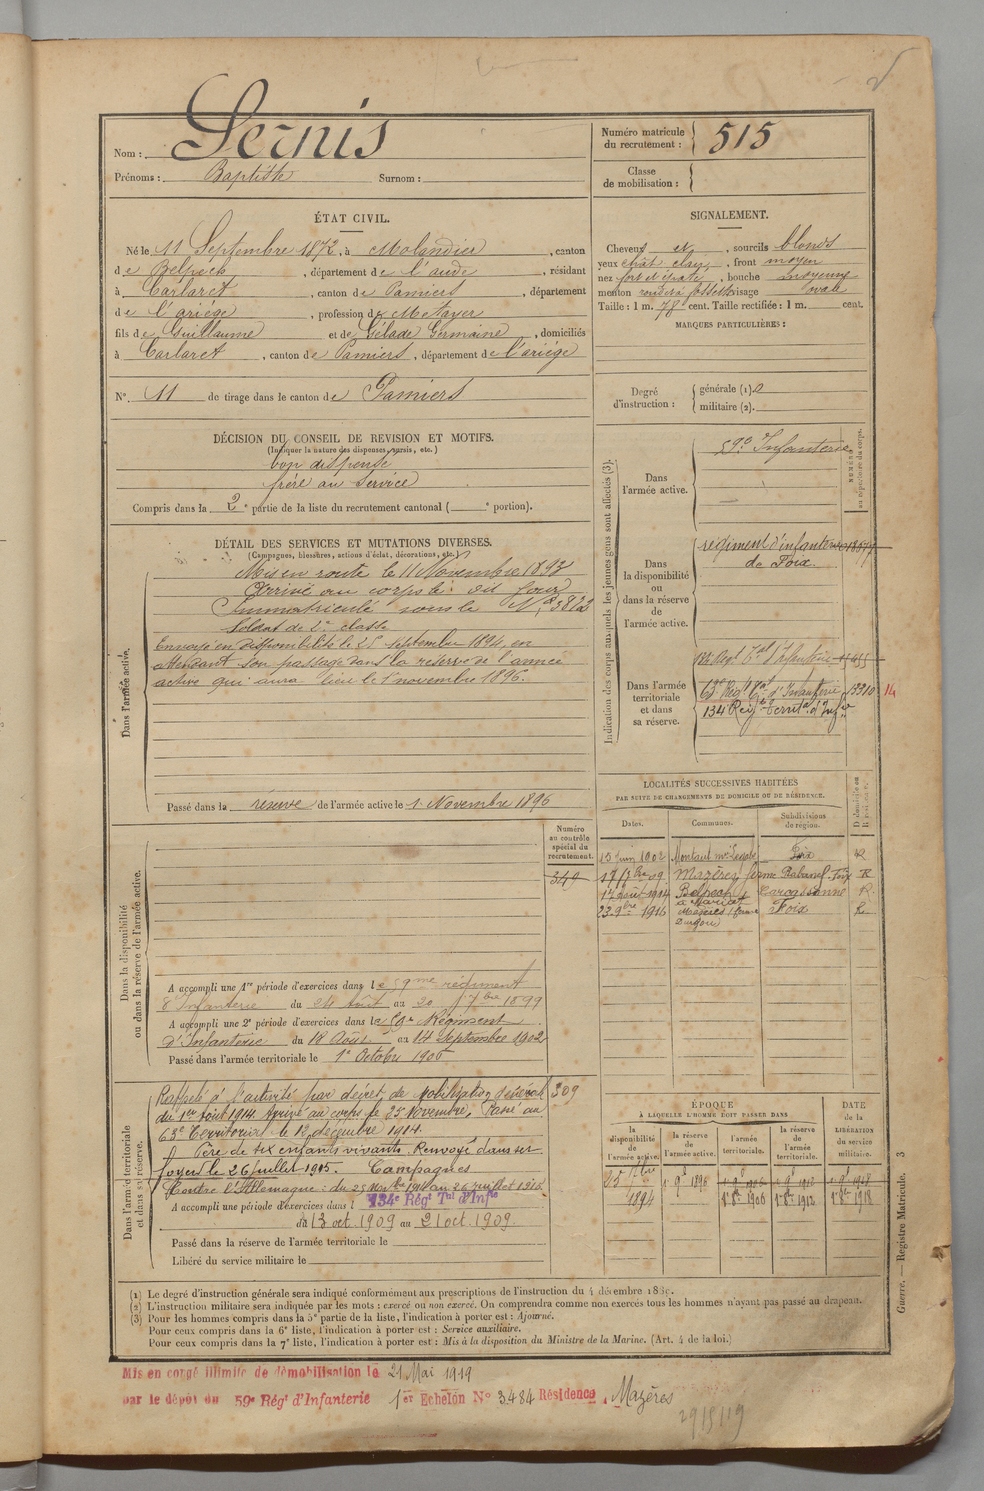 Nom : Sernis
Prénoms : Baptiste Surnom :
Numéro matricule du recrutement : 515
Classe de mobilisation :
ÉTAT CIVIL.
Né le 11 Septembre 1872, à Molandier, canton
de Belpech, département de l'aude, résidant
à Carlaret, canton de Pamiers, département
de l'ariége, profession de Metayer
fils de Guillaume et de Gélade Germaine, domiciliés
à Carlaret, canton de Pamiers, département de l'ariége
N°. 11 de tirage dans le canton de Pamiers
SIGNALEMENT.
Cheveux et, sourcils blonds
yeux chât clair, front moyen
nez fort et épaté, bouche moyenne
menton rond à fossette visage ovale
Taille : 1 m. 78 cent. Taille rectifiée : 1 m. cent.
MARQUES PARTICULIÈRES :
Degré d'instruction : générale (1). 2
militaire (2).
DÉCISION DU CONSEIL DE REVISION ET MOTIFS.
(Indiquer la nature des dispenses, sursis, etc.)
bon dispensé
frère au service
Compris dans la 2e partie de la liste du recrutement cantonal ( e portion).
DÉTAIL DES SERVICES ET MUTATIONS DIVERSES.
(Campagnes, blessures, actions d'éclat, décorations, etc.)
Dans l'armée active.
Mis en route le 11 Novembre 1893
Arrivé au corps le dit jour
Immatriculé sous le N°
Soldat de 2e classe
Envoyé en disponibilité le 25 septembre 1894, en
attendant son passage dans la réserve de l'armée
active qui aura lieu le 1 novembre 1896.
Passé dans la réserve de l'armée active le 1 Novembre 1896
Indication des corps auxquels les jeunes gens sont affectés (3).
NUMÉRO au répertoire du corps.
Dans l'armée active.
59e Infanterie
Dans la disponibilité ou dans la réserve de l'armée active.
régiment d'infanterie
de Foix
Dans l'armée territoriale et dans sa réserve.
134 Régt Tal d'Infanterie
63e Régt Tal d'Infanterie 14
134 Régt Territal d'Infie
LOCALITÉS SUCCESSIVES HABITÉES
PAR SUITE DE CHANGEMENTS DE DOMICILE OU DE RÉSIDENCE.
Dates. Communes. Subdivisions de région. D. domicile ou R. résidence.
15 juin 1902 Montaut Foix R
17 7bre 09 Mazères ferme Rabanel Foix R
17 août 1914 Belpech Carcassonne R
23 9bre 1916 Mazères ferme Foix R
Dans la disponibilité ou dans la réserve de l'armée active.
Numéro au contrôle spécial du recrutement.
349
A accompli une 1re période d'exercices dans le 59me régiment
d'Infanterie du 24 Août au 20 7bre 1899
A accompli une 2e période d'exercices dans le 59e Régiment
d'Infanterie du 18 Août au 14 Septembre 1902
Passé dans l'armée territoriale le 1er Octobre 1906
Dans l'armée territoriale et dans sa réserve.
Rappelé à l'activité par décret de mobilisation générale 309
du 1er août 1914. Arrivé au corps le 25 Novembre. Passé au
63e Territorial le 12 décembre 1914.
Père de six enfants vivants. Renvoyé dans ses
foyers le 26 juillet 1915. Campagnes
Contre l'Allemagne : du 25 Nov 1914 au 26 juillet 1915
A accompli une période d'exercices dans l 134e Régt Tal d'Infie
du 13 oct. 1909 au 21 oct. 1909.
Passé dans la réserve de l'armée territoriale le
Libéré du service militaire le
ÉPOQUE
À LAQUELLE L'HOMME DOIT PASSER DANS
la disponibilité de l'armée active. la réserve de l'armée active. l'armée territoriale. la réserve de l'armée territoriale. DATE de la LIBÉRATION du service militaire.
25 7bre 1894 1 9 1896
1 8bre 1906 1 8bre 1912 1 8bre 1918
(1) Le degré d'instruction générale sera indiqué conformément aux prescriptions de l'instruction du 4 décembre 1889.
(2) L'instruction militaire sera indiquée par les mots : exercé ou non exercé. On comprendra comme non exercés tous les hommes n'ayant pas passé au drapeau.
(3) Pour les hommes compris dans la 5e partie de la liste, l'indication à porter est : Ajourné.
Pour ceux compris dans la 6e liste, l'indication à porter est : Service auxiliaire.
Pour ceux compris dans la 7e liste, l'indication à porter est : Mis à la disposition du Ministre de la Marine. (Art. 4 de la loi.)
Guerre. — Registre Matricule. 3
Mis en congé illimité de démobilisation le 21 Mai 1919
par le dépôt du 59e Régt d'Infanterie 1er Echelon N° 3484 Résidence Mazères